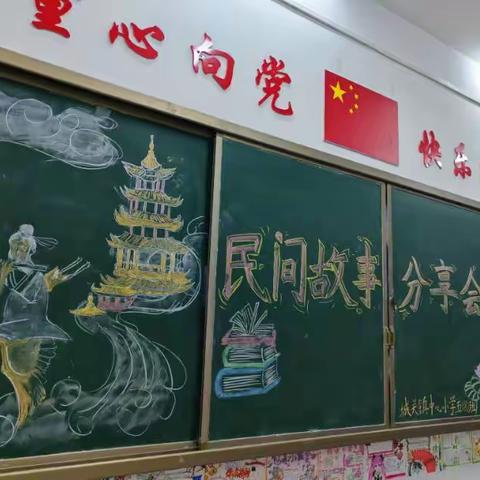 童心向党 快乐
民间故事 分享会
城关镇中心小学五